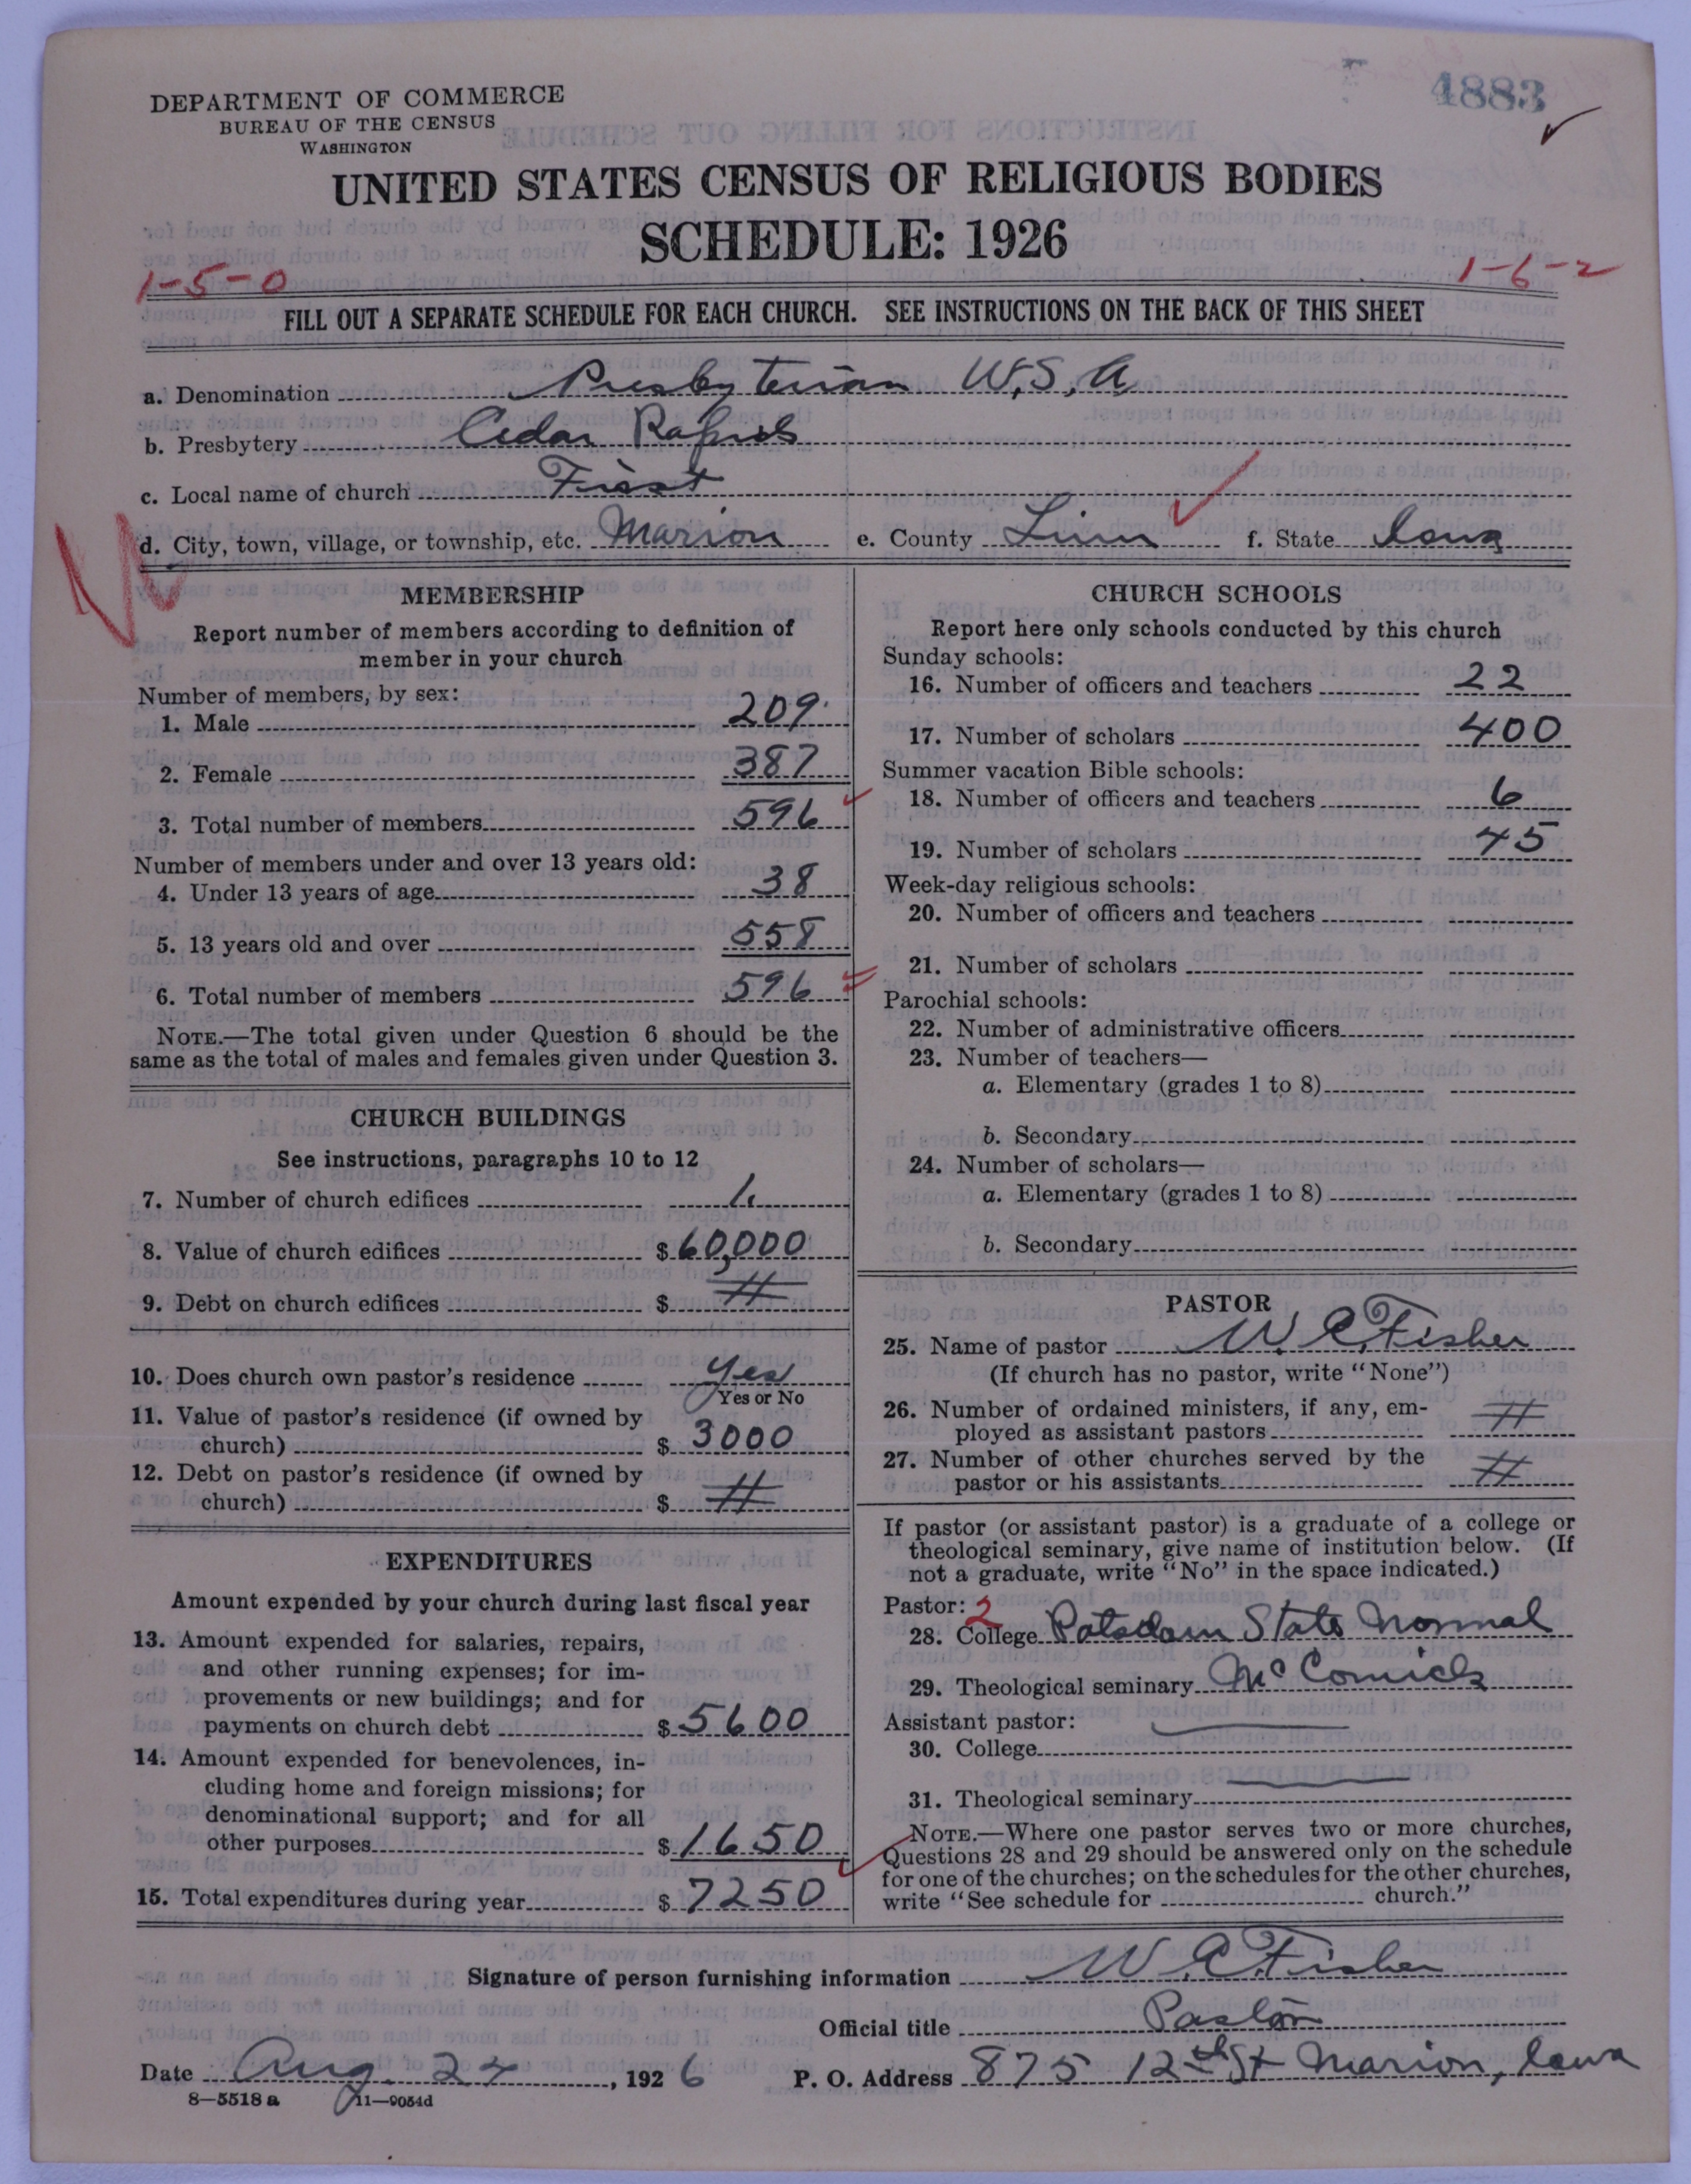 4883
DEPARTMENT OF COMMERCE
BUREAU OF THE CENSUS
WASHINGTON
UNITED STATES CENSUS OF RELIGIOUS BODIES
SCHEDULE: 1926
1-5-0
1-6-2
FILL OUT A SEPARATE SCHEDULE FOR EACH CHURCH. SEE INSTRUCTIONS ON THE BACK OF THIS SHEET
a. Denomination Presbyterian U.S.A
b. Presbytery Cedar Rapids
c. Local name of church First
d. City, town, village, or township, etc. Marion e. County Linn f. State Iowa
MEMBERSHIP
Report number of members according to definition of
member in your church
Number of members, by sex:
1. Male 209
2. Female 387
3. Total number of members 596
Number of members under and over 13 years old:
4. Under 13 years of age 38
5. 13 years old and over 558
6. Total number of members 596
NOTE.—The total given under Question 6 should be the
same as the total of males and females given under Question 3.
CHURCH BUILDINGS
See instructions, paragraphs 10 to 12
7. Number of church edifices 1
8. Value of church edifices $ 60,000
9. Debt on church edifices $
10. Does church own pastor's residence Yes
Yes or No
11. Value of pastor's residence (if owned by
church) $ 3000
12. Debt on pastor's residence (if owned by
church) $
EXPENDITURES
Amount expended by your church during last fiscal year
13. Amount expended for salaries, repairs,
and other running expenses; for im-
provements or new buildings; and for
payments on church debt $ 5600
14. Amount expended for benevolences, in-
cluding home and foreign missions; for
denominational support; and for all
other purposes $ 1650
15. Total expenditures during year $ 7250
CHURCH SCHOOLS
Report here only schools conducted by this church
Sunday schools:
16. Number of officers and teachers 22
17. Number of scholars 400
Summer vacation Bible schools:
18. Number of officers and teachers 6
19. Number of scholars 45
Week-day religious schools:
20. Number of officers and teachers
21. Number of scholars
Parochial schools:
22. Number of administrative officers
23. Number of teachers—
a. Elementary (grades 1 to 8)
b. Secondary
24. Number of scholars—
a. Elementary (grades 1 to 8)
b. Secondary
PASTOR
25. Name of pastor W. C. Fisher
(If church has no pastor, write "None")
26. Number of ordained ministers, if any, em-
ployed as assistant pastors
27. Number of other churches served by the
pastor or his assistants
If pastor (or assistant pastor) is a graduate of a college or
theological seminary, give name of institution below. (If
not a graduate, write "No" in the space indicated.)
Pastor: 2
28. College Potsdam State Normal
29. Theological seminary McComick
Assistant pastor:
30. College
31. Theological seminary
NOTE.—Where one pastor serves two or more churches,
Questions 28 and 29 should be answered only on the schedule
for one of the churches; on the schedules for the other churches,
write "See schedule for church."
Signature of person furnishing information W. C. Fisher
Official title Pastor
Date Aug. 24, 1926 P. O. Address 875 12th St Marion, Iowa
8—5518 a 11—9054d